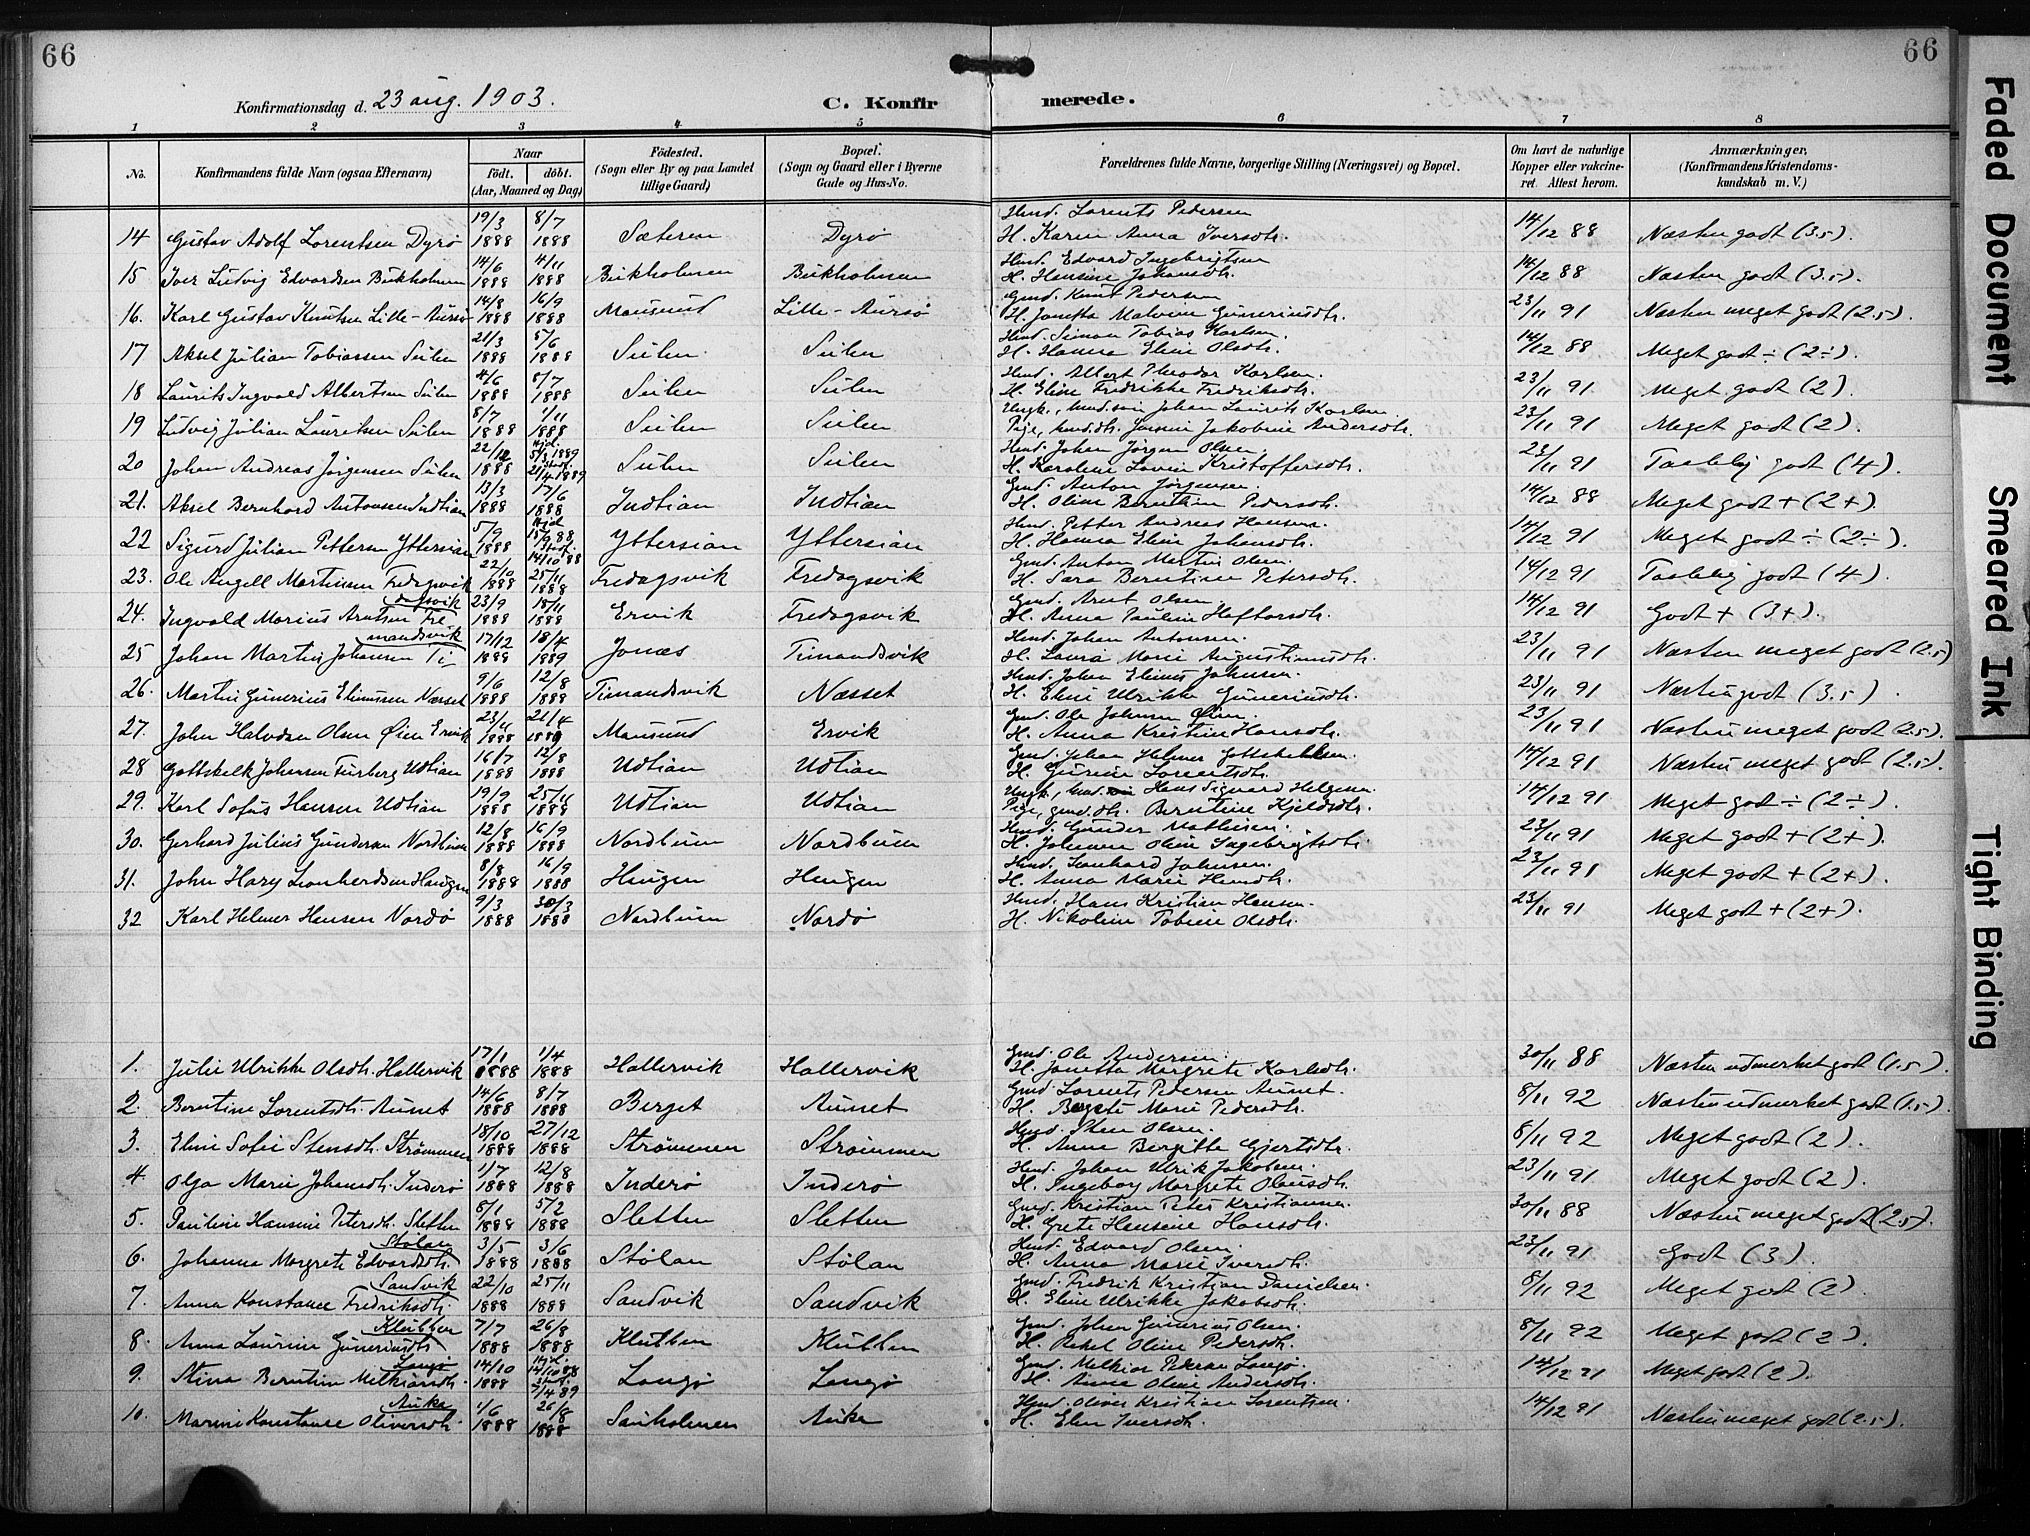 66
66
Konfirmationsdag d. 23 aug. 1903.
C. Konfirmerede.
1 2 3 4 5 6 7 8
No. Konfirmandens fulde Navn (ogsaa Efternavn) Naar födt. döbt. (Aar, Maaned og Dag) Födested. (Sogn eller By og paa Landet tillige Gaard) Bopæl. (Sogn og Gaard eller i Byerne Gade og Hus-No. Forældrenes fulde Navne, borgerlige Stilling (Næringsvei) og Bopæl. Om havt de naturlige Kopper eller vakcineret. Attest herom. Anmærkninger, (Konfirmandens Kristendomskundskab m. V.)
14 Gustav Adolf Lorentsen Dyrø 19/3 1888 8/7 1888 Sæteren Dyrø Lorents Pedersen H. Karen Anna Iversdtr. 14/12 88 Næsten godt (3.5).
15 Iver Ludvig Edvardsen Bukholmen 14/6 1888 4/11 1888 Bukholmen Bukholmen Edvard Ingebrigtsen H. Hansine Johansdtr. 14/12 88 Næsten godt (3.5).
16. Karl Gustav Knutsen Lille-Aursø 14/8 1888 16/9 1888 Mausund Lille-Aursø Gmd. Knut Pedersen H. Janetta Malvine Guneriusdtr. 23/11 91 Næsten meget godt (2.5).
17 Aksel Julian Tobiassen Sulen 21/3 1888 5/6 1888 Sulen Sulen Simon Tobias Karlsen H. Hanna Eline Olsdtr. 14/12 88 Meget godt ÷ (2÷).
18 Laurits Ingvald Albertsen Sulen 4/6 1888 8/7 1888 Sulen Sulen Albert Theodor Karlsen. H. Eline Fredrikke Fredriksdtr. 23/11 91 Meget godt (2)
19 Ludvig Julian Lauritsen Sulen 8/7 1888 1/11 1888 Sulen Sulen Ungk., Johan Laurits Karlsen Pige, Jensine Jakobine Andersdtr. 23/11 91 Meget godt (2).
20 Johan Andreas Jørgensen Sulen 22/12 1888 Hjd. 5/3 1889 Stadf. 21/4 1889 Sulen Sulen Johan Jørgen Olsen H. Karoline Lovise Kristoffersdtr. 23/11 91 Taalelig godt (4).
21. Aksel Bernhard Antonsen Indtian 13/3 1888 17/6 1888 Indtian Indtian Gmd. Anton Jørgensen. H. Oline Berntine Pedersdtr. 14/12 88 Meget godt + (2+).
22 Sigurd Julian Pettersen Yttersian 5/9 1888 Hjd. 88 Stadf. 14/10 88 Yttersian Yttersian Petter Andreas Hansen. H. Hanna Eline Johansdtr. 14/12 91 Meget godt ÷ (2÷).
23. Ole Angell Martinsen Fredagsvik 22/10 1888 25/11 1888 Fredagsvik Fredagsvik Gmd. Anton Martin Olsen. H. Sara Berntine Petersdtr. 14/12 91 Taalelig godt (4).
24. Ingvald Marius Arntsen Fredagsvik 23/9 1888 18/11 1888 Ervik Fredagsvik Gmd. Arnt Olsen. H. Anna Pauline Haftorsdtr. 14/12 91 Godt + (3+).
25 Johan Martin Johansen Timandsvik 17/12 1888 18/4 1889 Jonæs Timandsvik Johan Antonsen. H. Laura Marie Augustinusdtr. 23/11 91 Næsten meget godt (2.5)
26. Martin Gunerius Elinussen Næsset 9/6 1888 12/8 1888 Timandsvik Næsset Johan Elinus Johnsen H. Elen Ulrikke Guneriusdtr. 23/11 91 Næsten godt (3.5).
27. John Halvdan Olsen Øien Ervik 23/11 1888 21/4 1889 Mausund Ervik Gmd. Ole Johnsen Øien. H. Anna Kristine Hansdtr. 23/11 91 Næsten meget godt (2.5).
28 Gottskelk Johansen Furberg Udtian 16/7 1888 12/8 1888 Udtian Udtian Gmd. Johan Helmer Gottskelksen. H. Gurine Lorentsdtr. 14/12 91 Næsten meget godt (2.5).
29. Karl Sofus Hansen Udtian 19/9 1888 25/11 1888 Udtian Udtian Ungk., Hans Sigvard Helgesen Pige, gmd.dtr. Berntine Kjeldsdtr. 14/12 91 Meget godt ÷ (2÷).
30. Gerhard Julius Gundersen Nordbuen 12/8 1888 16/9 1888 Nordbuen Nordbuen Gunder Mathisen. H. Johanna Oline Ingebrigtsdtr. 23/11 91 Meget godt + (2+).
31. John Hary Leonhardsen Haugen 8/8 1888 16/9 1888 Haugen Haugen Leonhard Johnsen. H. Anna Marie Hansdtr. 23/11 91 Meget godt + (2+).
32 Karl Helmer Hansen Nordø 9/3 1888 30/3 1888 Nordbuen Nordø Hans Kristian Hansen. H. Nikoline Tobine Olsdtr. 23/11 91 Meget godt + (2+).
1. Julie Ulrikke Olsdtr. Hallervik 17/1 1888 1/4 1888 Hallervik Hallervik Gmd. Ole Andersen. H. Janetta Margrete Karlsdtr. 30/11 88 Næsten udmerket godt (1.5).
2. Berntine Lorentsdtr. Aunet 14/6 1888 8/7 1888 Berget Aunet Gmd. Lorents Pedersen Aunet. H. Marie Pedersdtr. 8/11 92 Næsten udmerket godt (1.5).
3. Eline Sofie Stensdtr. Strømmen 18/10 1888 27/12 1888 Strømmen Strømmen Sten Olsen. H. Anne Bergitte Gjertsdtr. 8/11 92 Meget godt (2).
4 Olga Marie Johansdtr. Inderø 1/7 1888 12/8 1888 Inderø Inderø Johan Ulrik Jakobsen. H. Ingeborg Margrete Olausdtr. 23/11 91 Meget godt (2).
5. Pauline Hansine Petersdtr. Sletten 5/1 1888 5/2 1888 Sletten Sletten Gmd. Kristian Peter Kristiansen H. Grete Hansine Hansdtr. 30/11 88 Næsten meget godt (2.5).
6. Johanna Margrete Edvardsdtr. Stølan 3/5 1888 3/6 1888 Stølan Stølan Edvard Olsen. H. Anna Marie Iversdtr. 23/11 91 Godt (3).
7. Anna Konstance Fredriksdtr. Sandvik 22/10 1888 25/11 1888 Sandvik Sandvik Gmd. Fredrik Kristian Danielsen H. Eline Ulrikke Jakobsdtr. 8/11 92 Meget godt (2)
8. Anna Laurine Guneriusdtr. Klubben 7/7 1888 26/8 1888 Klubben Klubben Gmd. Johan Gunerius Olsen. H. Rakel Oline Pedersdtr. 8/11 92 Meget godt (2).
9. Stina Berntine Melkiorsdtr. Langø 14/10 1888 Hjd. Stadf. Langø Langø Gmd. Melkior Petersen Langø. H. Anna Oline Andersdtr. 14/12 91 Meget godt (2).
10. Marine Konstance Oliversdtr. Auka 1/6 1888 26/8 1888 Sauholmen Auka Oliver Kristian Lorentsen. H. Elen Iversdtr. 14/12 91 Næsten meget godt (2.5).
Faded Document
Smeared Ink
Tight Binding